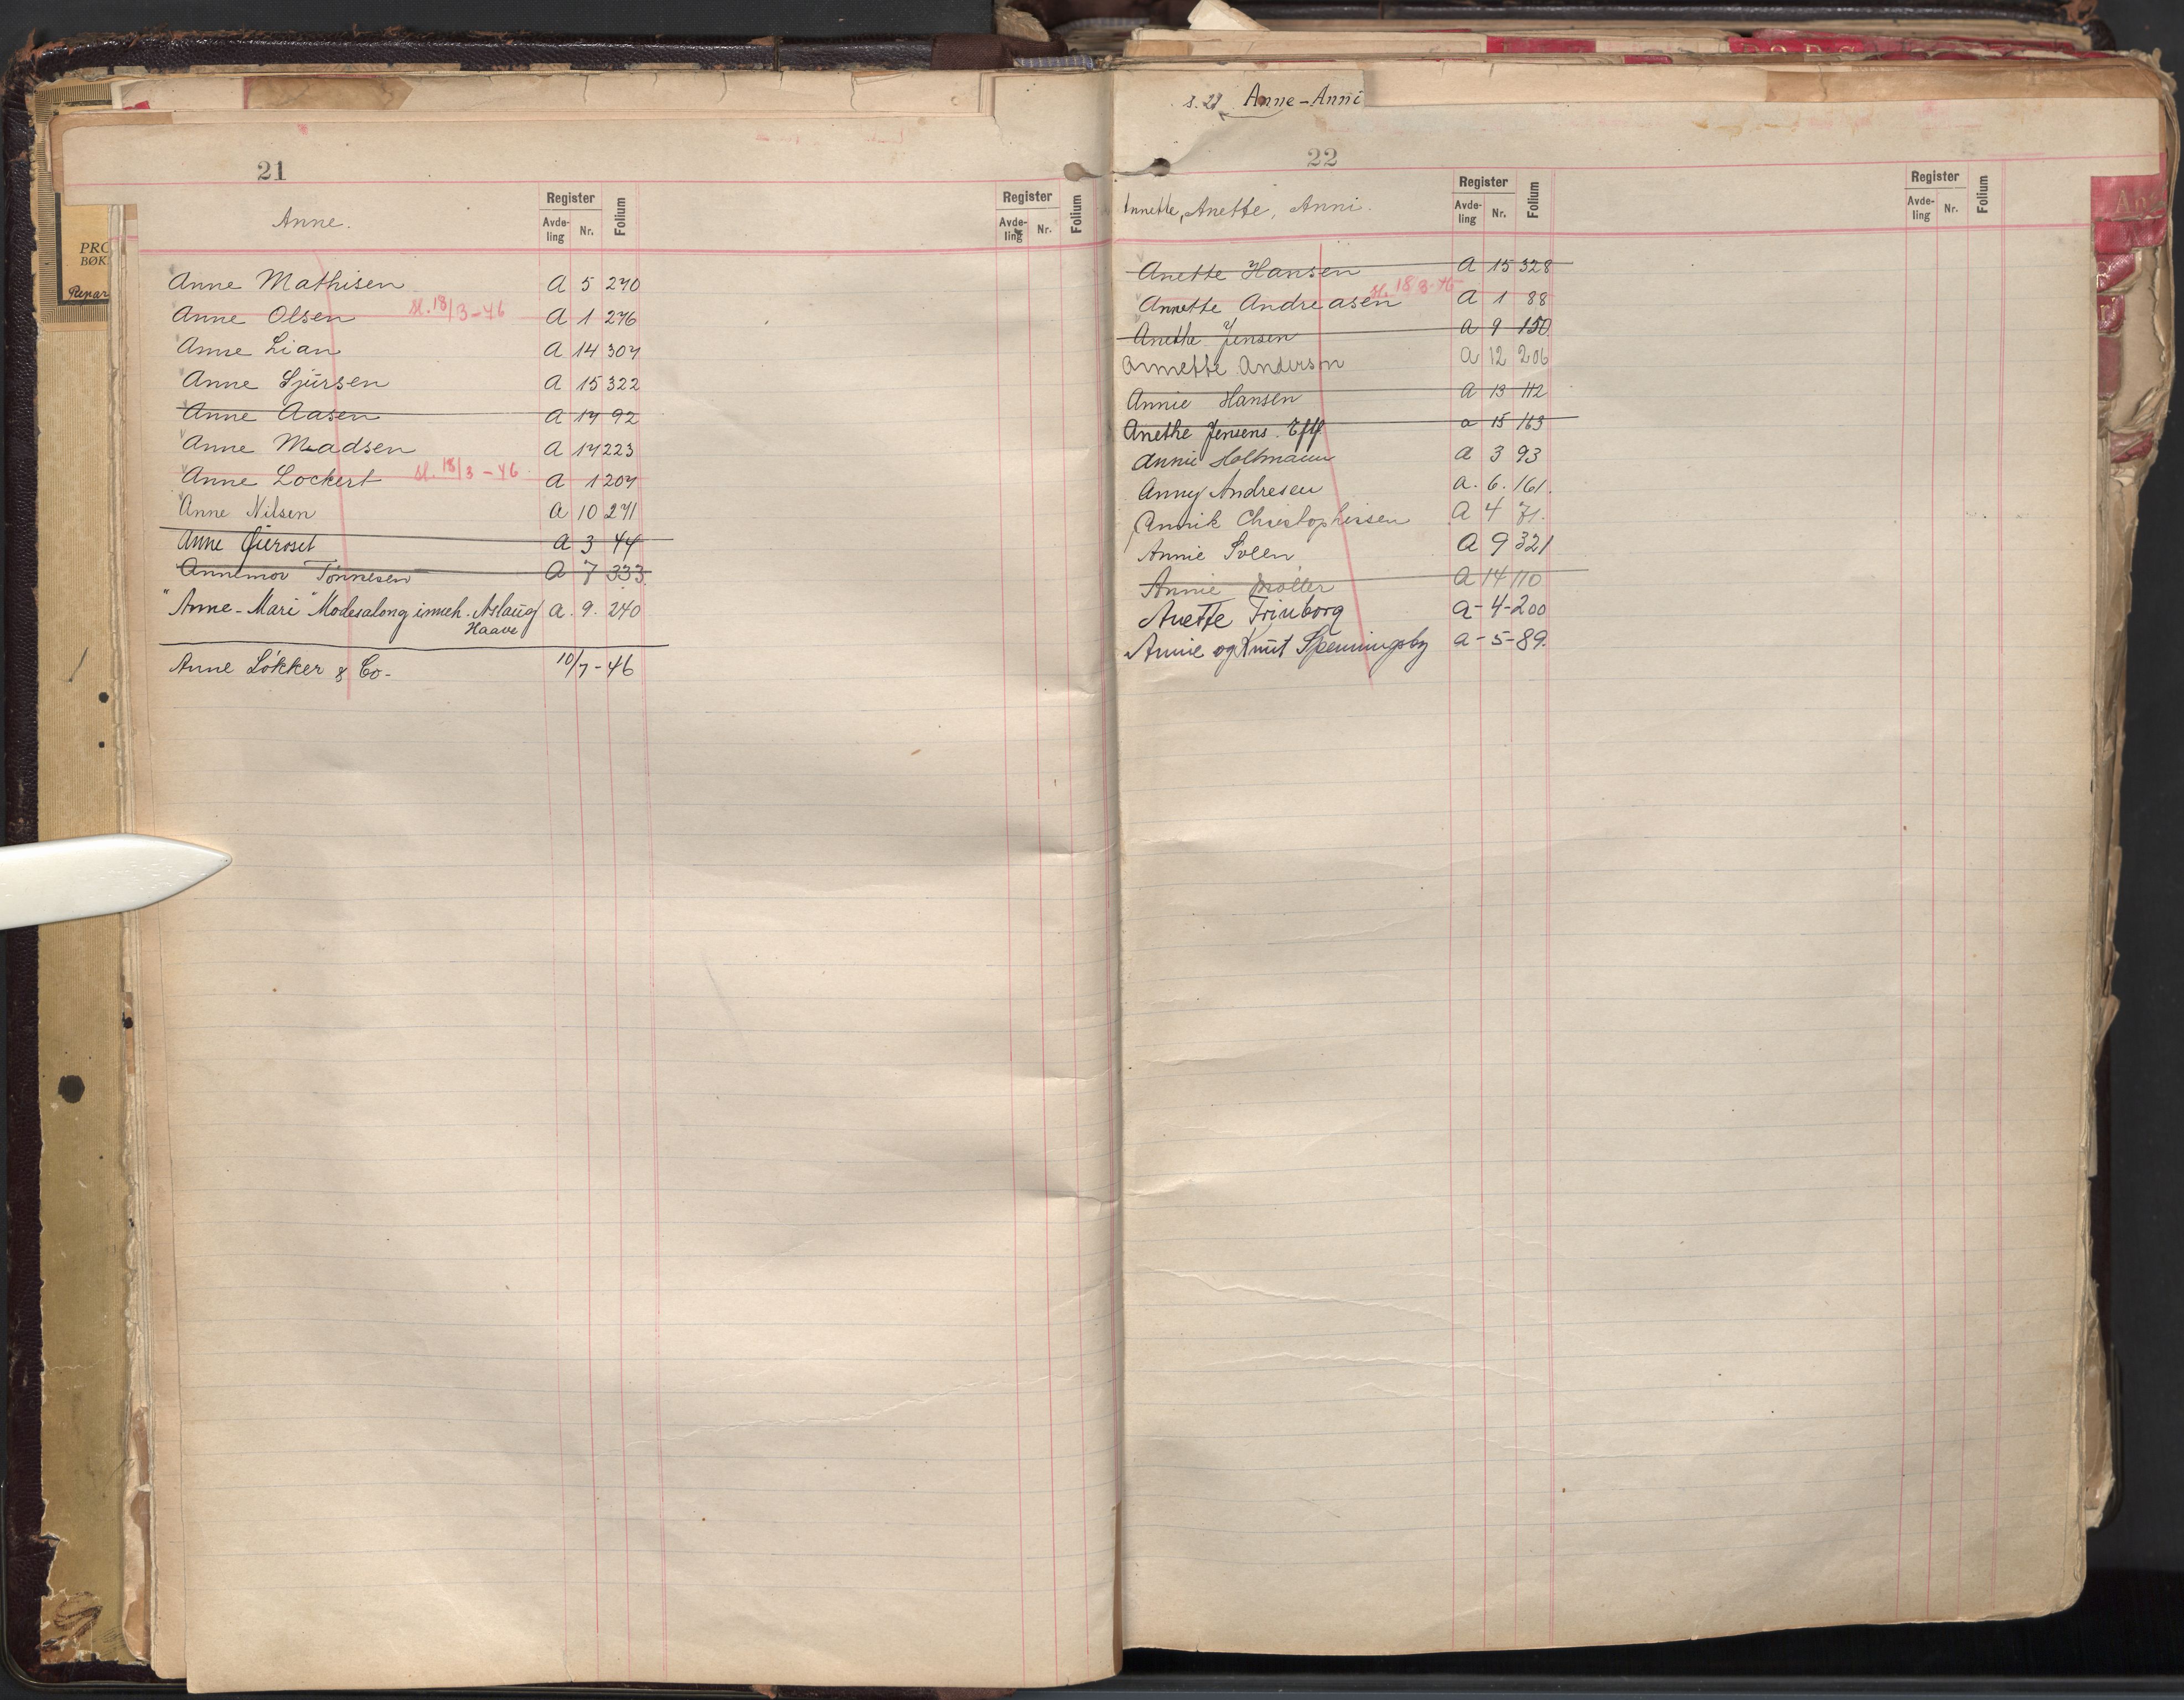 PRO
BØK
Repar
21
Anne.
Register
Avde-
ling
Nr.
Folium
Register
Avde-
ling
Nr.
Folium
Anne Mathisen A 5 270
Anne Olsen sl. 18/3-46 A 1 276
Anne Lian A 14 307
Anne Sjursen A 15 322
Anne Aasen A 17 92
Anne Madsen A 17 223
Anne Lockert sl. 18/3-46 A 1 207
Anne Nilsen A 10 271
Anne A 3 44
Annemor Tønnesen A 7 333.
"Anne-Mari" Modesalong inneh. Aslaug A. 9. 240
Haave
Anne Løkker & Co- 10/7-46
s. 22 Anne-Anni
22
Annette, Anette, Anni.
Register
Avde-
ling
Nr.
Folium
Register
Avde-
ling
Nr.
Folium
Anette Hansen A 15 328
Annette Andreasen sl. 18/3-46 A 1 88
Anethe Jensen A 9 150
Annette Anderson A 12 206
Annie Hansen A 13 112
Anethe Jensens Eftf. a 15 163
Annie Holtmann A 3 93
Anny Andresen A. 6. 161.
Annik Christophersen A 4 71.
Annie Sveen A 9 321
Annie Møller A 14 110
Anette Trinborg A-4-200
Annie og Knut Spenningsby A-5-89.